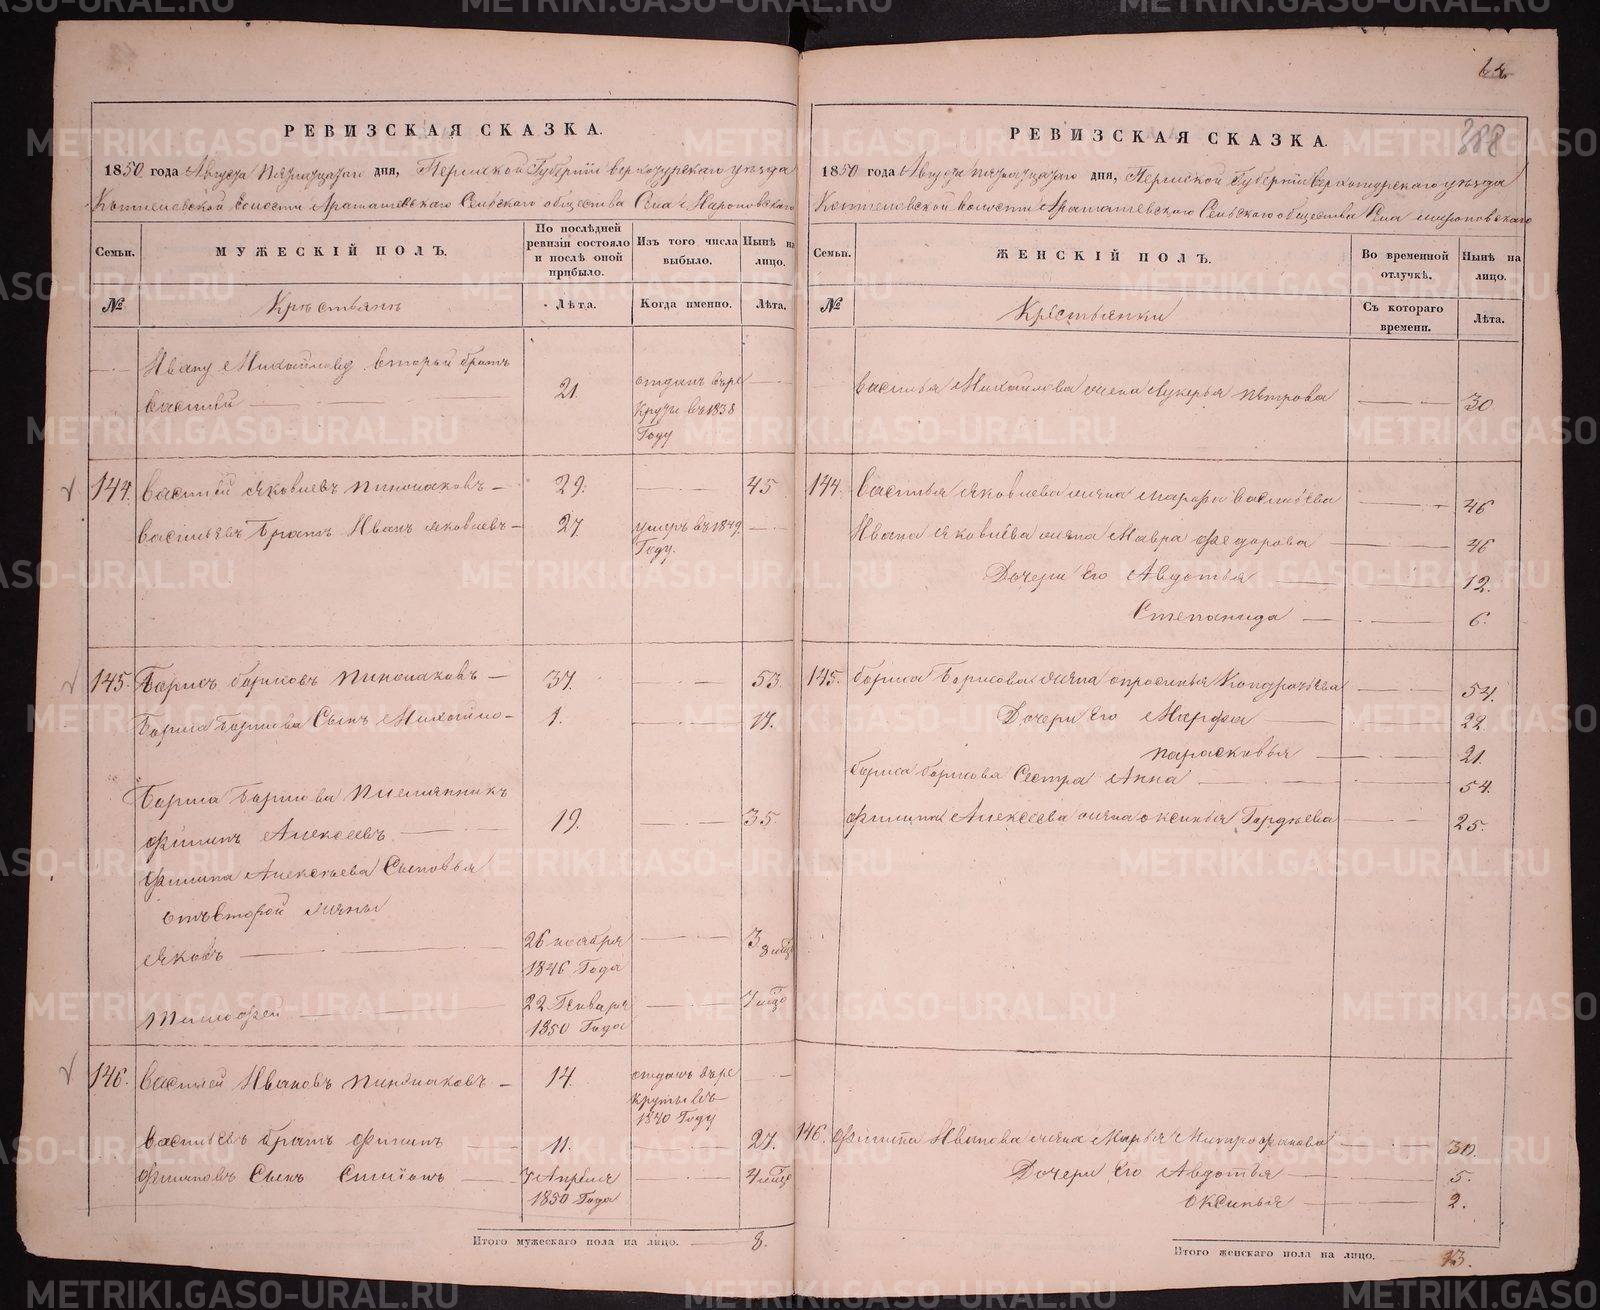 РЕВИЗСКАЯ СКАЗКА.
1850 года Августа пятнатцатаго дня, Пермской Губернiи верхотурскаго уѣзда
волости Арамашевскаго Сельскаго общества Села Мироновскаго
Семьи. МУЖЕСКІЙ ПОЛЪ. По послѣдней ревизіи состояло и послѣ оной прибыло. Изъ того числа выбыло. Нынѣ на лицо.
№ Крестьянъ Лѣта. Когда именно. Лѣта.
Ивану Михайлову второй братъ
Василiй 21. отданъ въ рекруты въ 1838 Году
144. Василiй Яковлевъ 29. 45
Васильевъ братъ Иванъ Яковлевъ 27. умеръ въ 1849 Году.
145. Борисъ борисовъ 37. 53.
Бориса борисова Сынъ Михайло 1. 17.
Бориса борисова племянникъ
Филипъ Алексеевъ 19. 35.
Филипа Алексѣева Сыновья
отъ второй жены
Яковъ 26 ноября 1846 Года 3 8 мѣс
Тимофей 22 Генваря 1850 Года 7 мѣс
146. Василей Ивановъ 14. отданъ въ рекруты въ 1840 Году
Васильевъ братъ Филипъ 11. 27.
Филиповъ Сынъ 7 Апреля 1850 Года 4 мѣс
Итого мужескаго пола на лицо. 8.
64
388
РЕВИЗСКАЯ СКАЗКА.
1850 года Августа пятнатцатаго дня, Пермской Губернiи верхотурскаго уѣзда
волости Арамашевскаго Сельскаго общества Села мироновскаго
Семьи. ЖЕНСКІЙ ПОЛЪ. Во временной отлучкѣ. Нынѣ на лицо.
№ Крестьянки Съ котораго времени. Лѣта.
Василья Михайлова жена Лукерья петрова 30
144. Василья Яковлева жена Васильева 46
Ивана Яковлева жена Мавра Федорова 46
Дочери Его Авдотья 12.
Степанида 6.
145. бориса Борисова жена Кондратьева 54.
Дочери Его Марфа 22
парасковья 21.
бориса борисова Сестра Анна 54.
Филипа Алексеева жена оксинья Гордѣева 25.
146. Филипа Иванова жена Марья Митрофанова 30.
Дочери Его Авдотья 5.
Оксинья 2.
Итого женскаго пола на лицо. 13.
METRIKI.GASO-URAL.RU